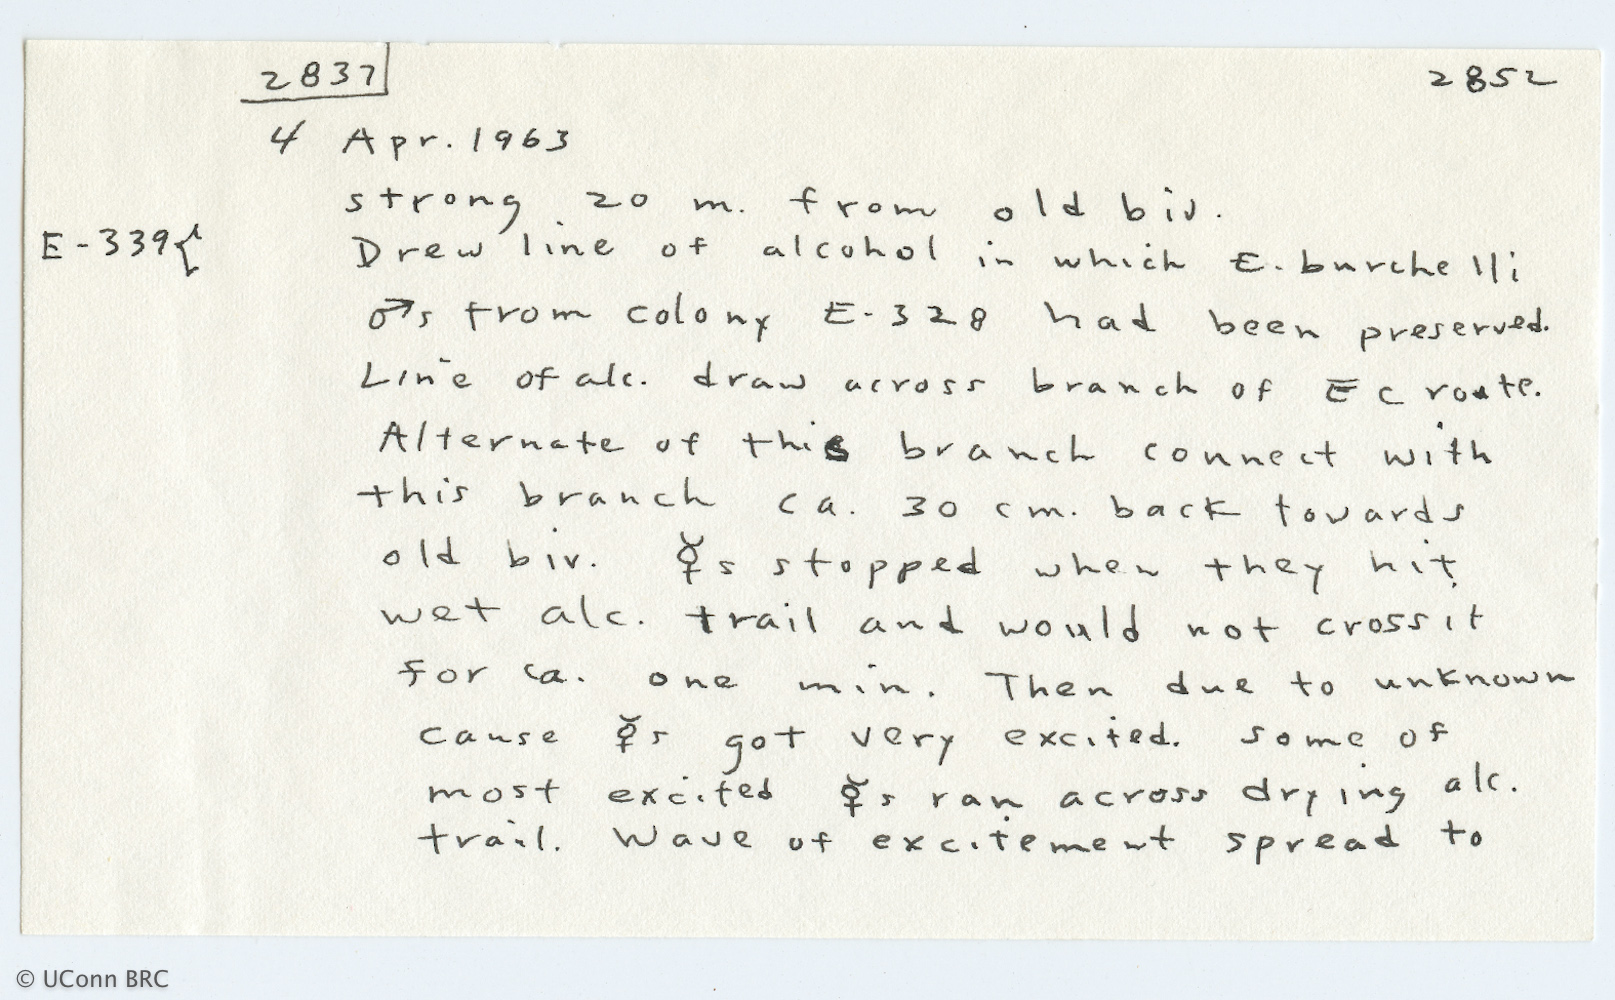 2837
2852
4 Apr. 1963
strong 20 m. from old biv.
E-339{ Drew line of alcohol in which E. burchelli
♂s from colony E-328 had been preserved.
Line of alc. draw across branch of Ec route.
Alternate of this branch connect with
this branch ca. 30 cm. back towards
old biv. ☿s stopped when they hit
wet alc. trail and would not cross it
for ca. one min. Then due to unknown
cause ☿s got very excited. Some of
most excited ☿s ran across drying alc.
trail. Wave of excitement spread to
© UConn BRC